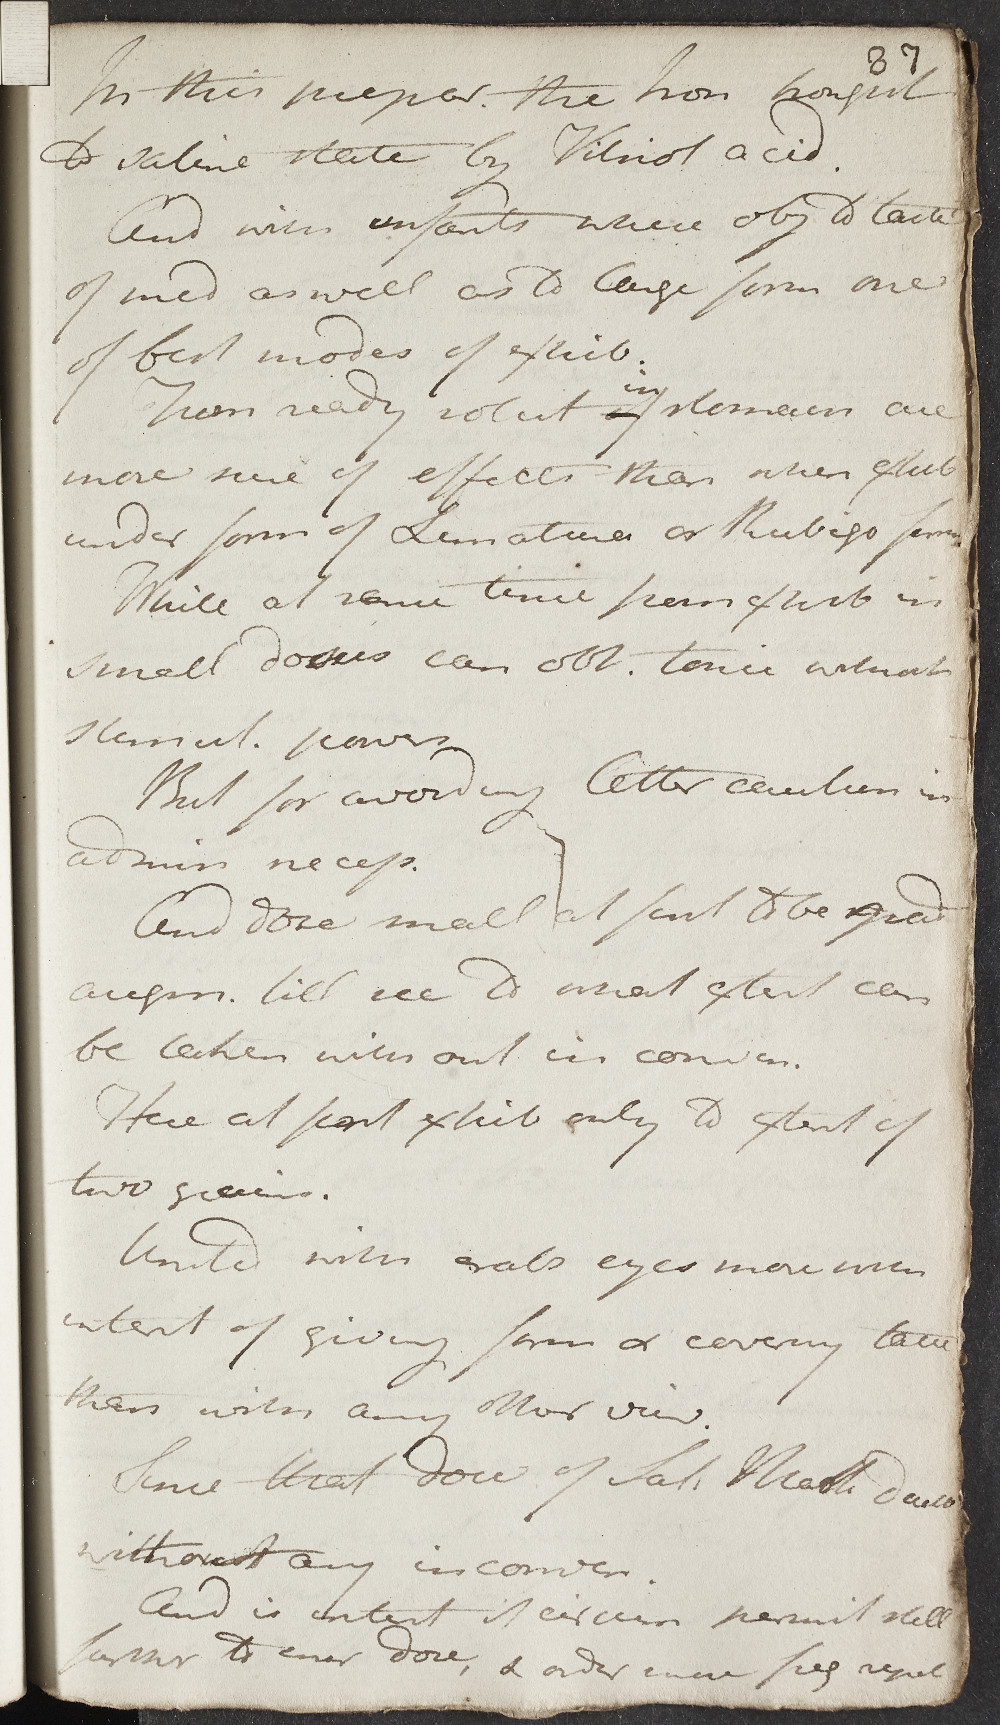 87
In this prepar. the Iron brought
to saline state by Vitriol acid.
And with infants where obj to taste
of med as well as to large form one
of best modes of exhib.
From ready solut in stomach are
more sure of effects than when exhib
under form of Limatura or Rubigo ferri
While at same time from exhib in
small doses can obt. tonic without
stimul. power
But for avoiding latter caution in
admin necess.
And dose small at first to be grad
augm. till see to what extent can
be taken without in conven.
Here at first exhib only to extent of
two grains.
United with crabs eyes more with
intent of giving form & covering taste
than with any other view.
Since that dose of Sal. Mart daily
without any inconven.
And is intent if circum permit still
further to incr dose, & order more freq repet